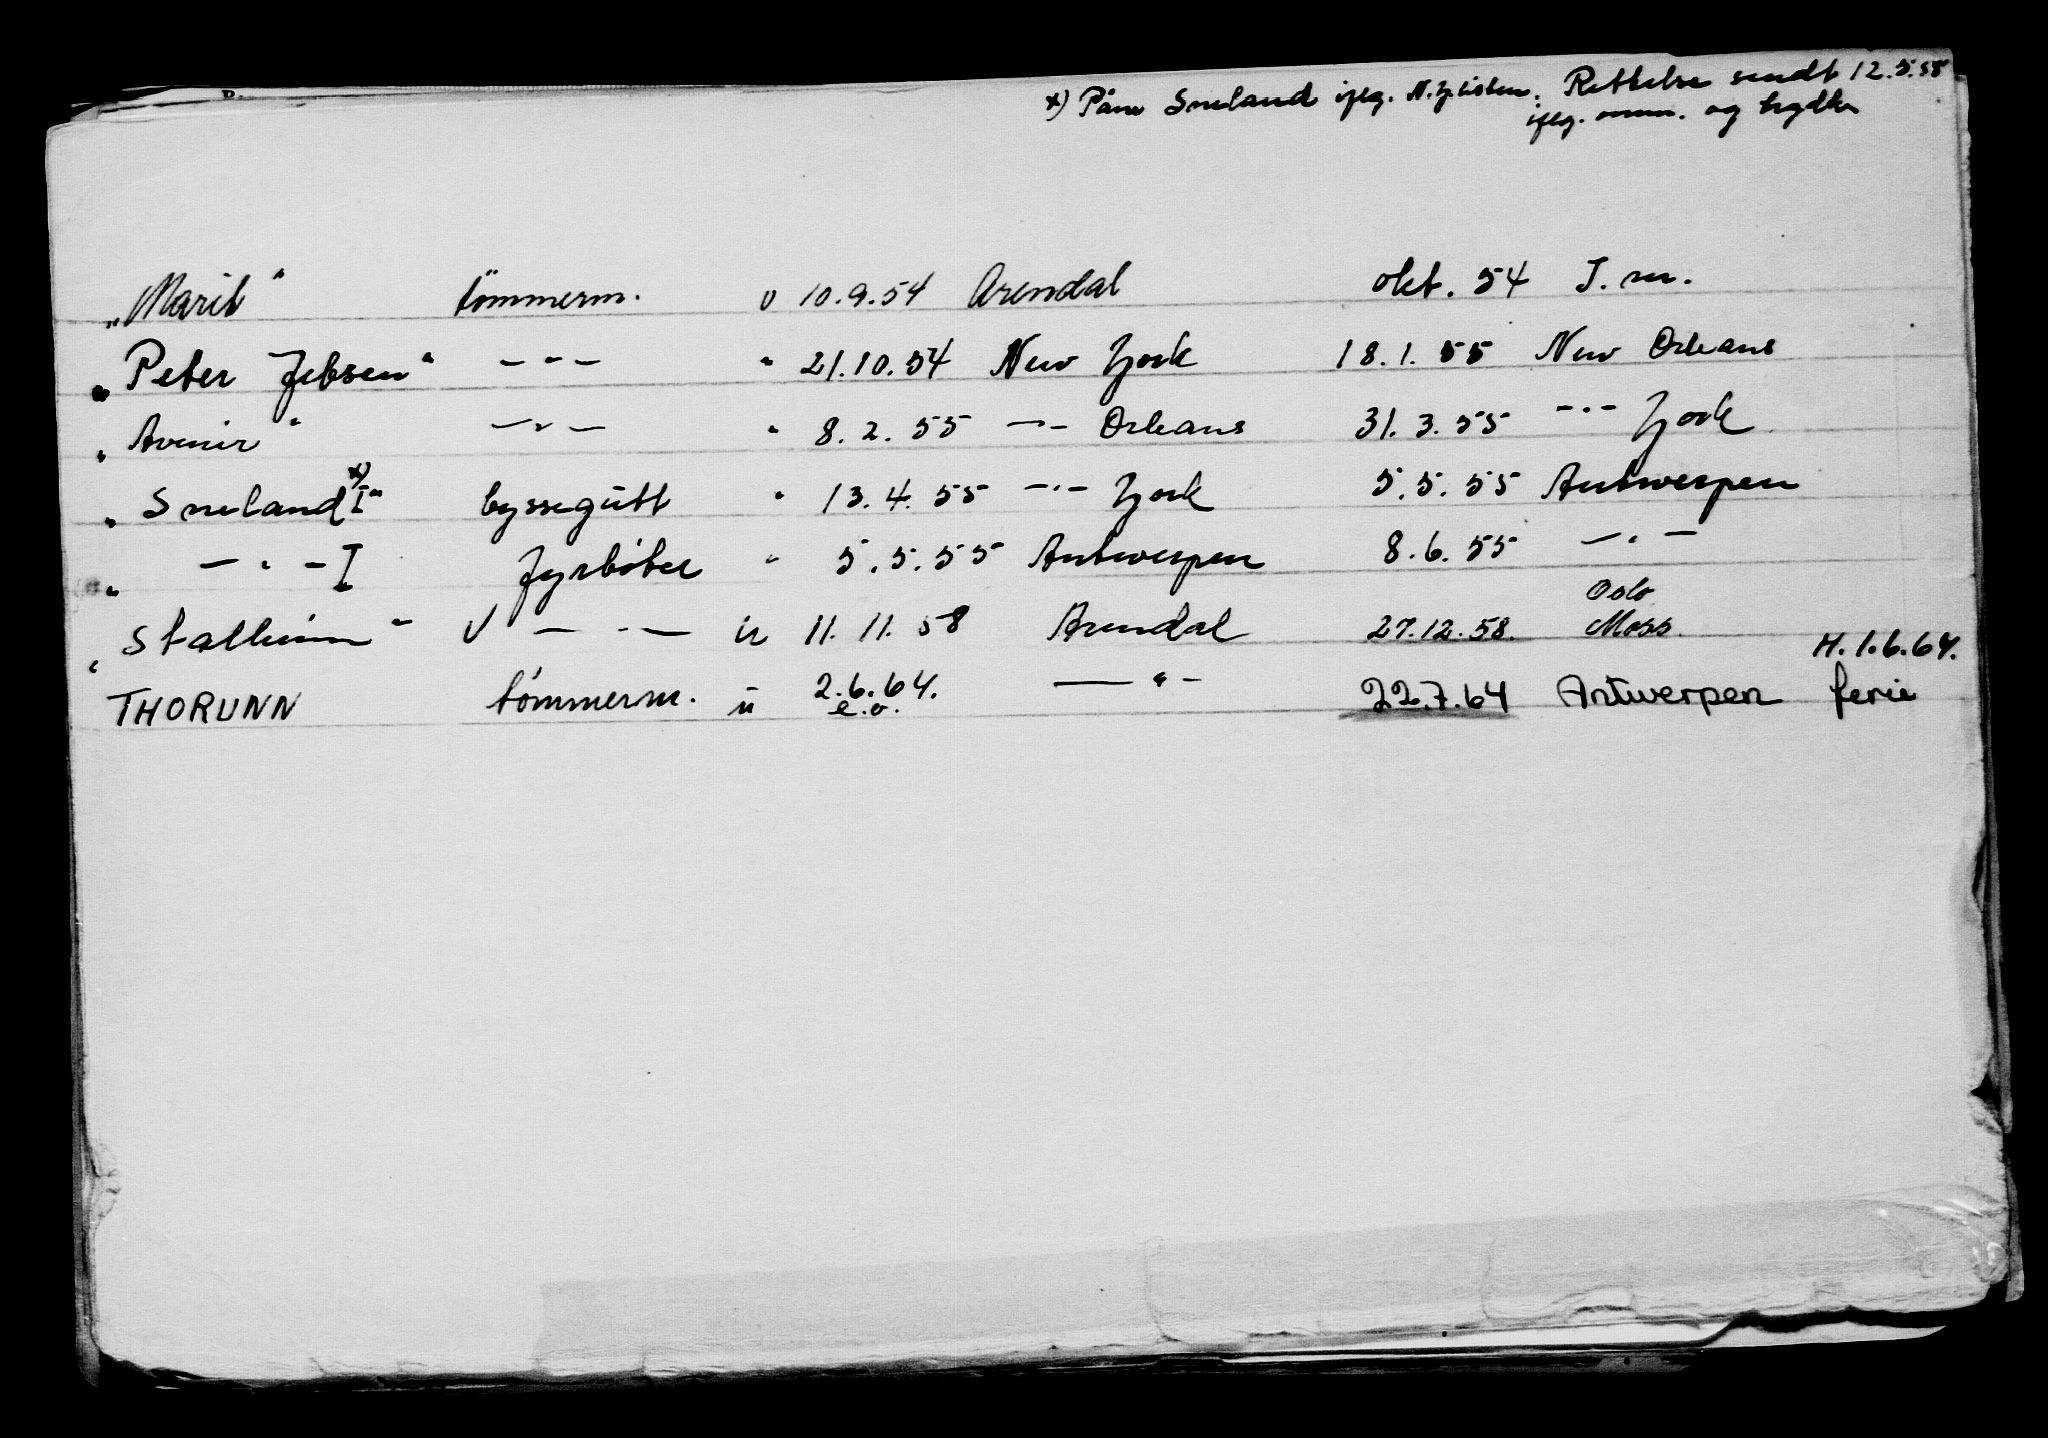 x) Påm Sneland iflg. N.Y. listen. Rettelse sendt 12.5.58
iflg. og
"Marit" tömmerm. u 10.9.54 Arendal okt. 54 I. m.
"Peter Jebsen" — " — " 21.10.54 New York 18.1.55 New Orleans
"Avenir" — " — " 8.2.55 — " — Orleans 31.3.55 — " — York
"Sneland x) I" byssegutt " 13.4.55 — " — York 5.5.55 Antwerpen
" — " — I fyrböter " 5.5.55 Antwerpen 8.6.55 — " —
Oslo
"Stalheim" V — " — u 11.11.58 Arendal 27.12.58. Moss
H. 1.6.64.
THORUNN tömmerm. u 2.6.64. — " — 22.7.64 Antwerpen ferie
e.o.